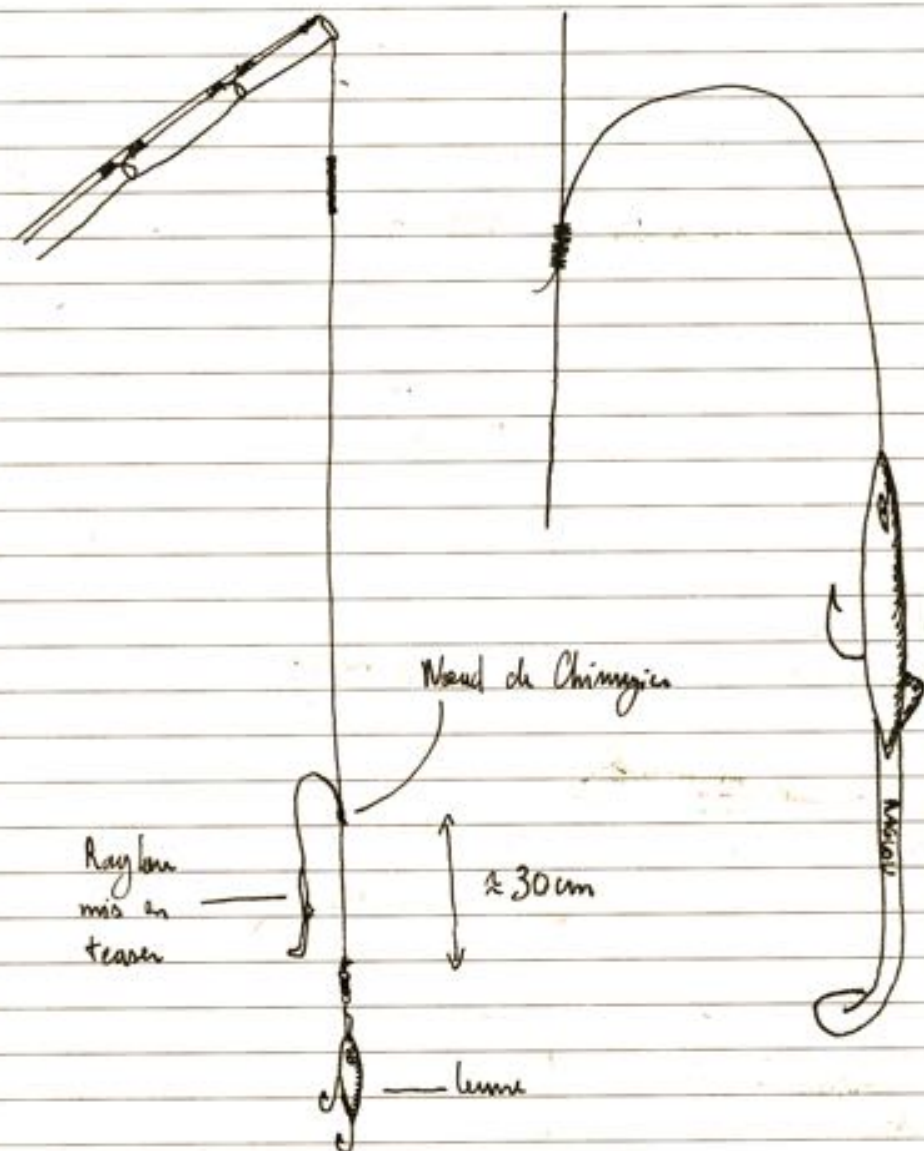 Nœud de Chirurgien
≈ 30 cm
Raglou
mis en
teaser
leurre
RAGLOU